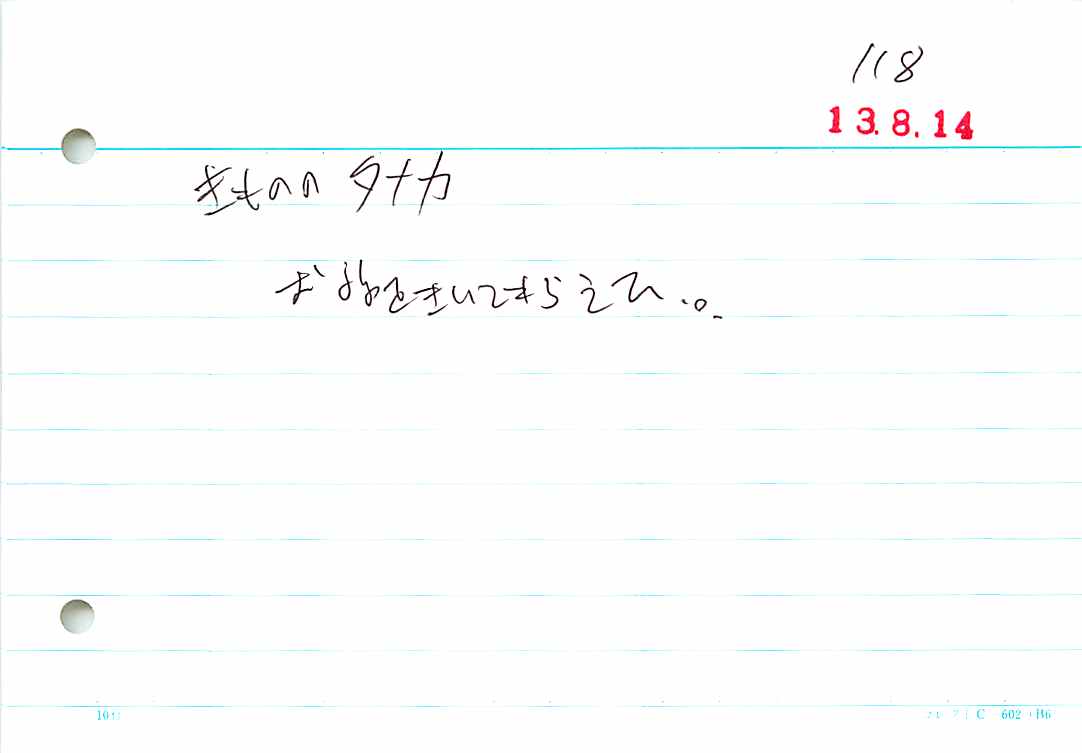 118
13.8.14
きものの タナカ
お話をきいてもらえて...
C 602 B6